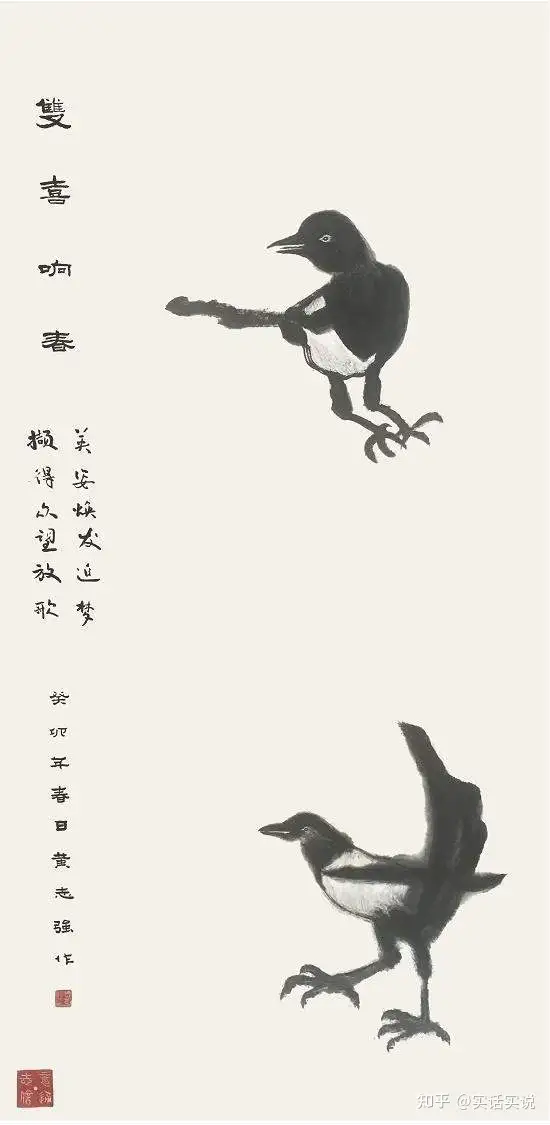 雙喜响春
美姿焕发梦
撷得众望放歌
癸卯年春日黄志强作
知乎 @实话实说